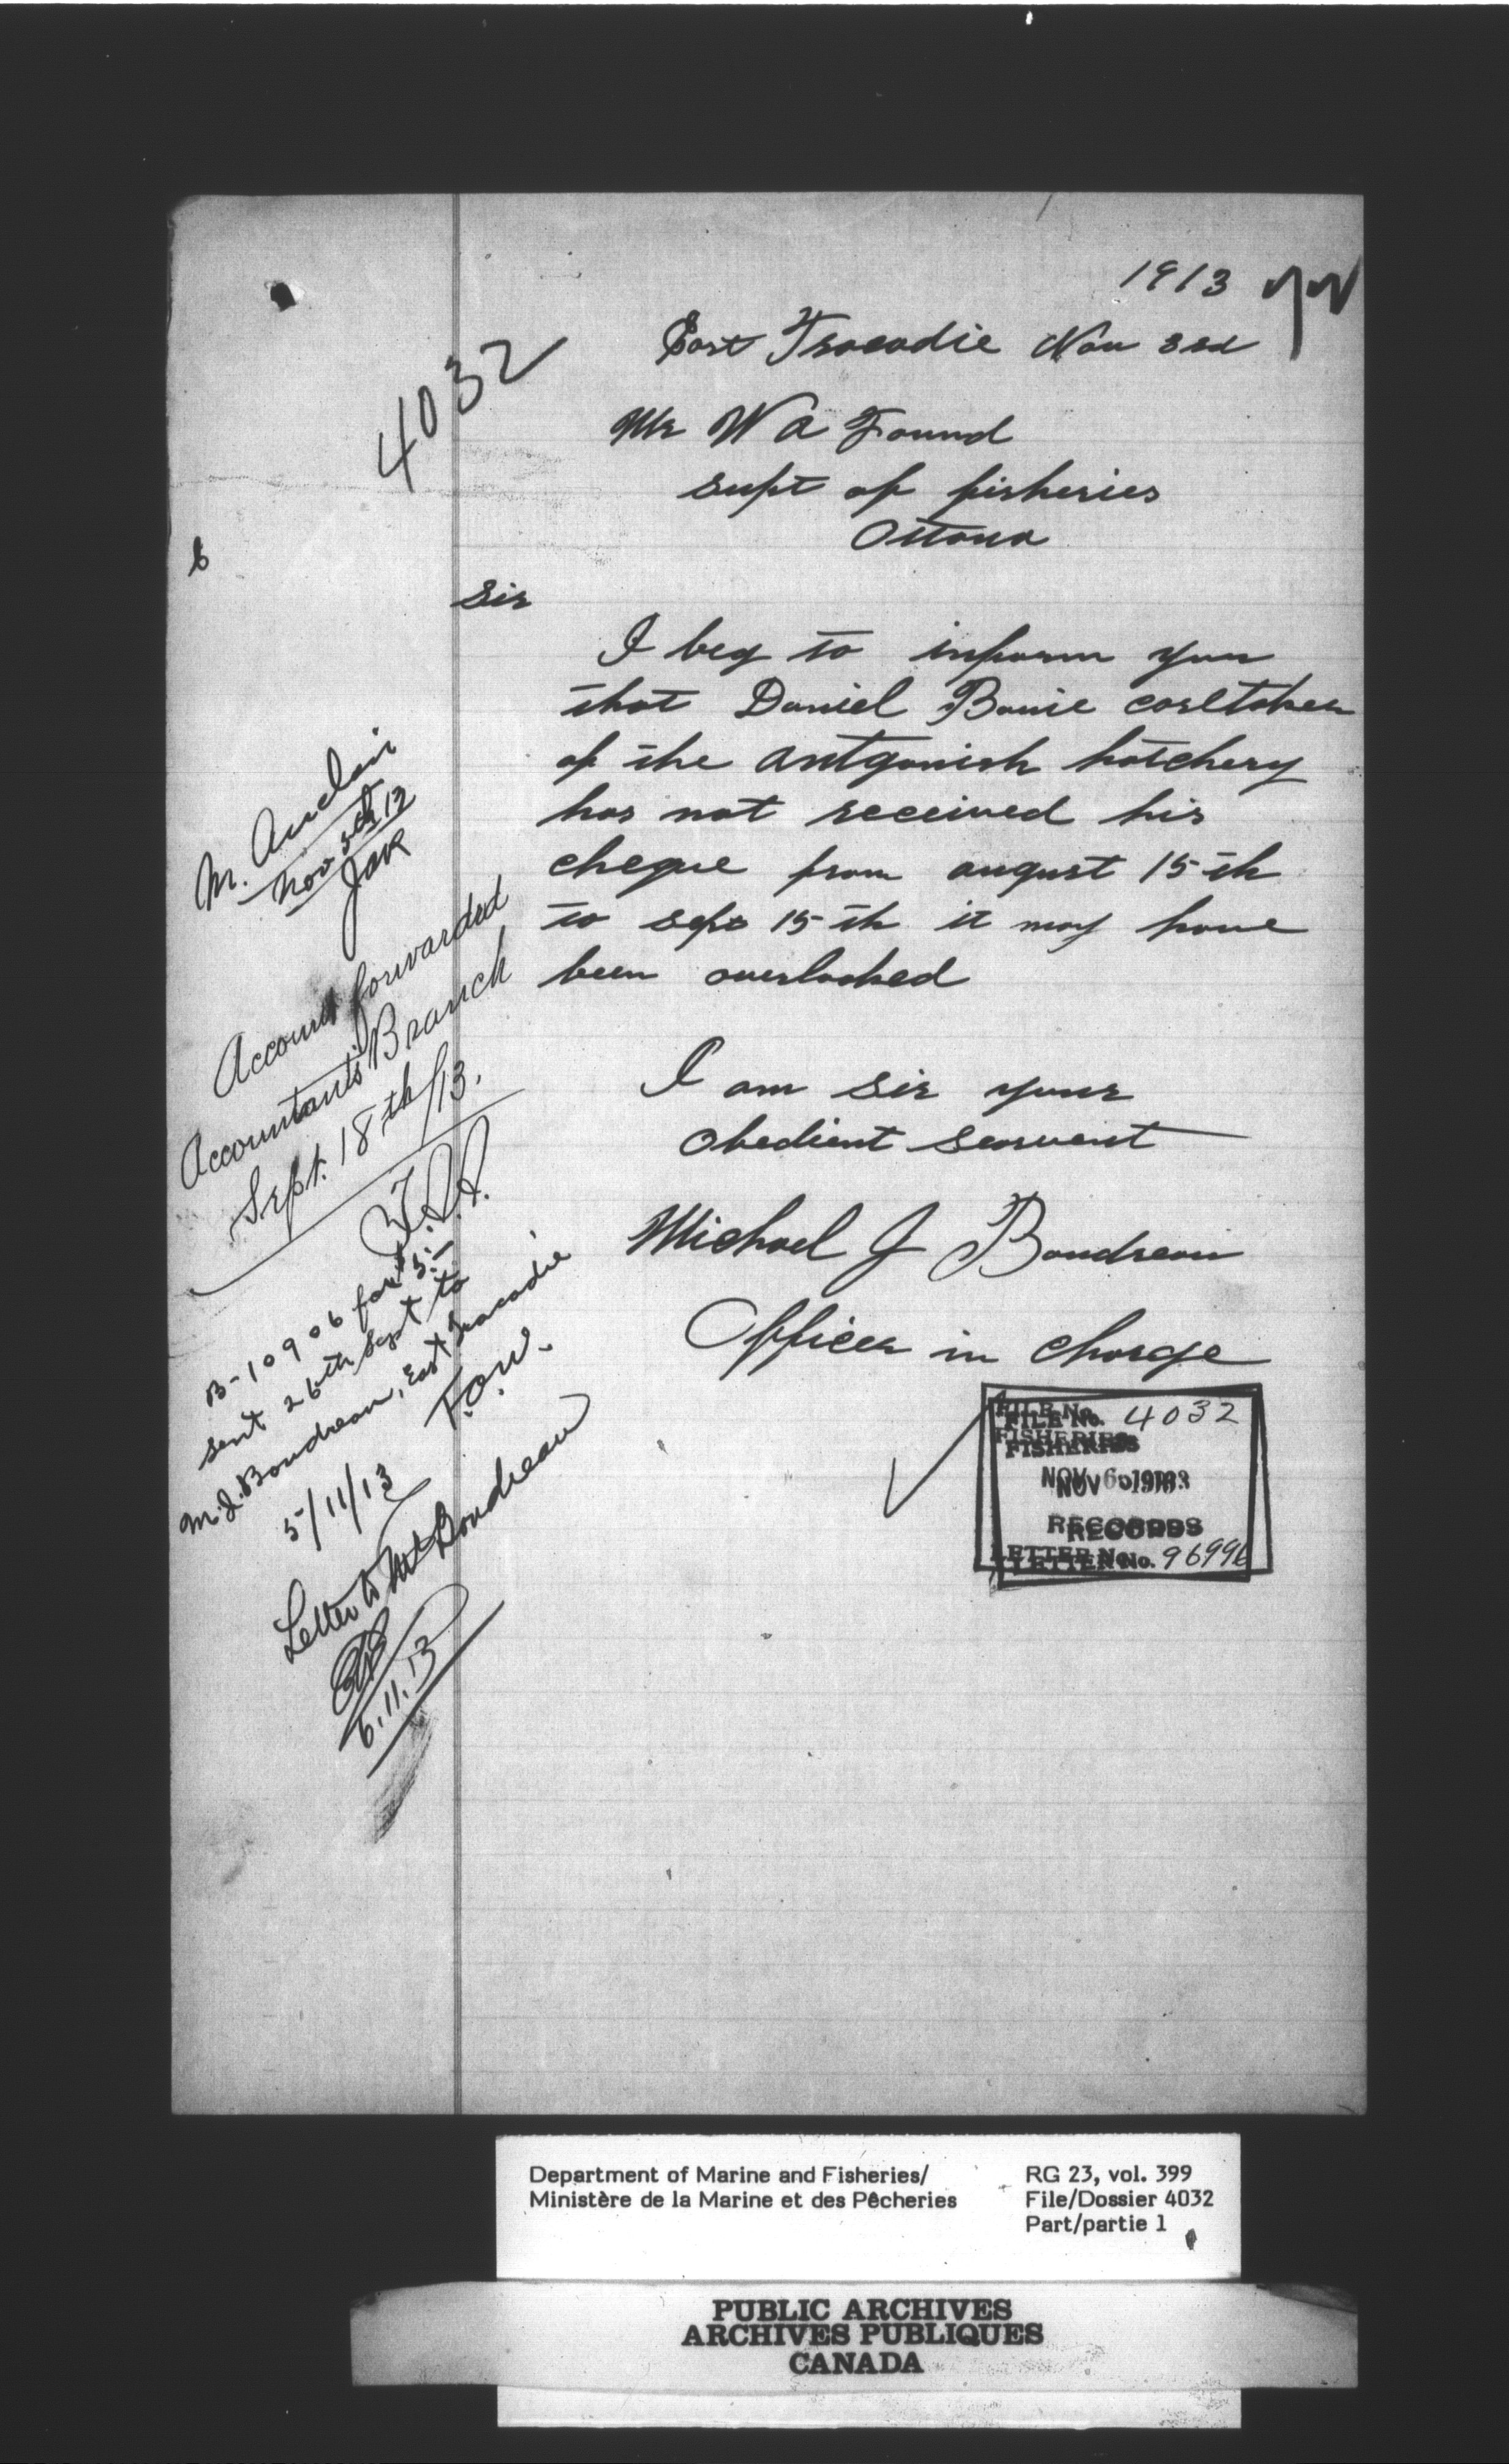 1913
East Tracadie Nov 3rd
Mr W A Found
supt of fisheries
Ottawa
4032
Sir
I beg to inform you
that Daniel Bowie caretaker
of the antgonish hatchery
has not received his
cheque from august 15th
to sept 15th it may have
been overlooked
I am sir your
obedient searvent
Michael J Boudreau
Officer in charge
M. Auclair
Nov 5th 13
Account forwarded
Accountants Branch
Sept. 18th/13.
B-10906 for $5.–
sent 26th Sept to
M.J. Boudreau, East Tracadie
5/11/13
Letter to Mr Boudreau
6.11.13
FILE No. 4032
FISHERIES
NOV 6 1913
RECORDS
LETTER No. 96996
Department of Marine and Fisheries/
Ministère de la Marine et des Pêcheries
RG 23, vol. 399
File/Dossier 4032
Part/partie 1
PUBLIC ARCHIVES
ARCHIVES PUBLIQUES
CANADA